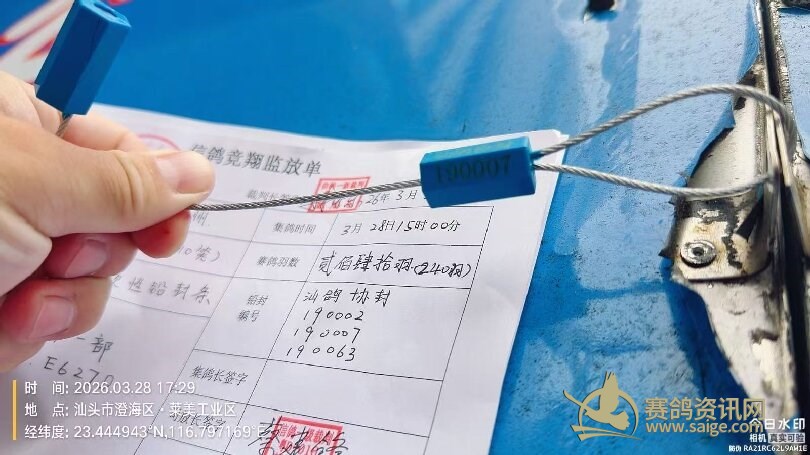 信鸽竞翔监放单
26年3月
集鸽时间
3月28日15时00分
赛鸽羽数
贰佰肆拾羽(240羽)
铅封
编号
汕鸽协封
190002
190007
190063
性铅封条
一部
E6270
集鸽长签字
190007
时 间: 2026.03.28 17:29
地 点: 汕头市澄海区·莱美工业区
经纬度: 23.444943°N,116.797169°E
赛鸽资讯网
www.saige.com
今日水印
相机 真实可验
防伪 RA21RC62L9AW1E